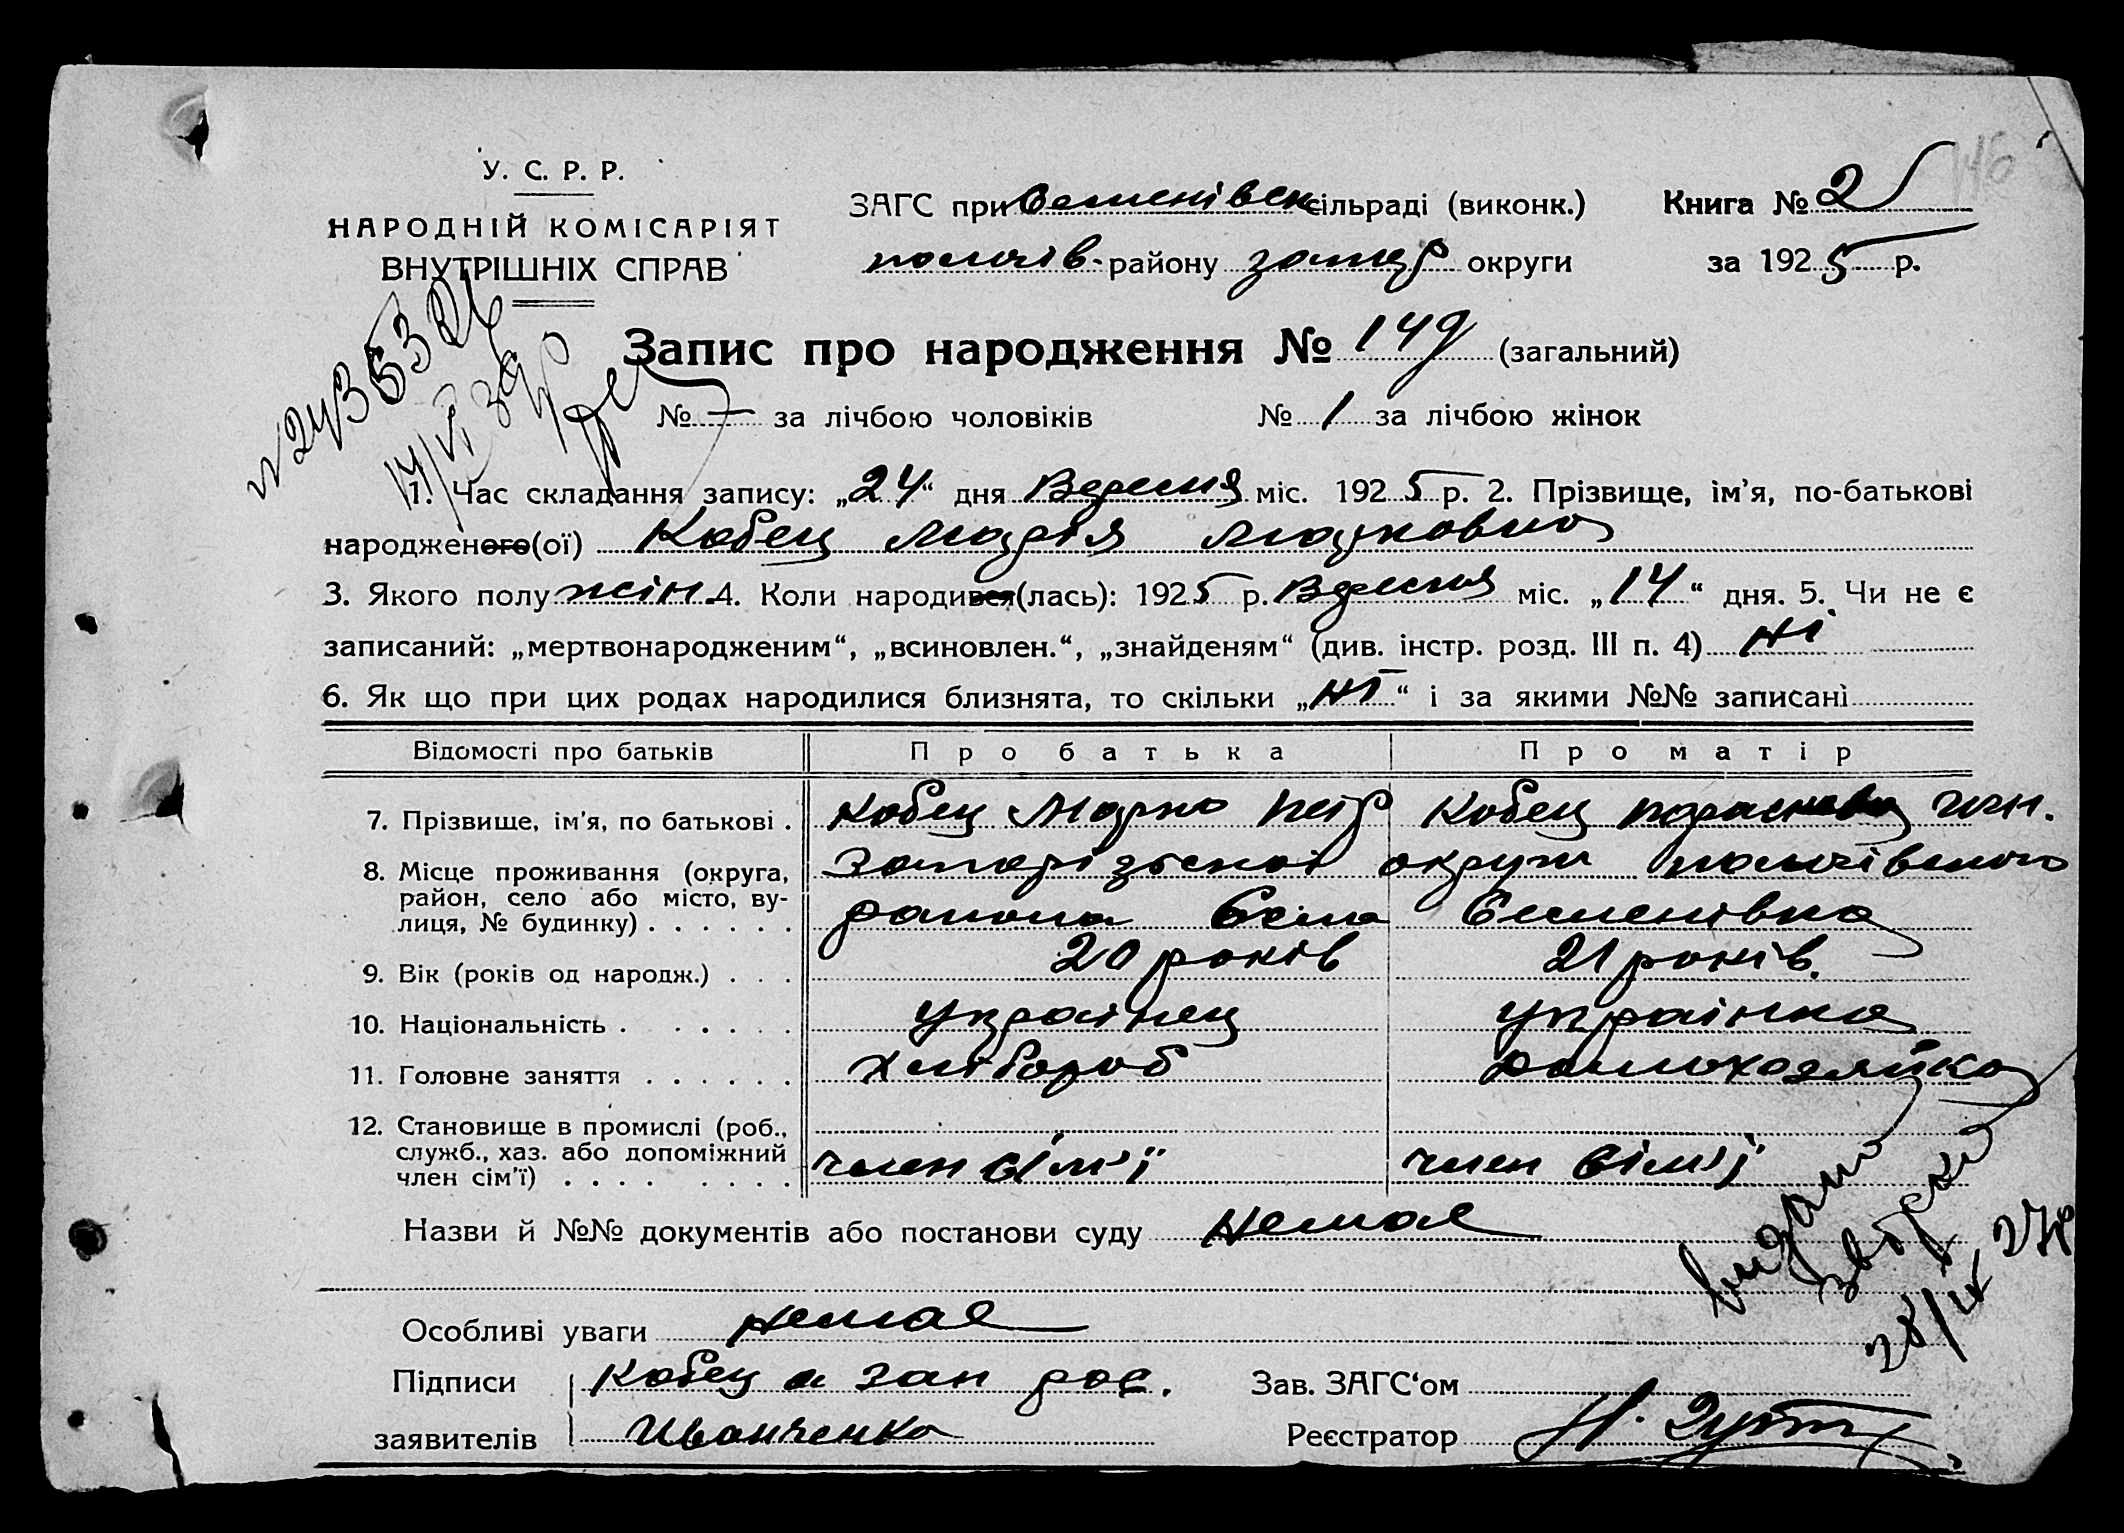 У. С. Р. Р.
НАРОДНІЙ КОМІСАРІЯТ
ВНУТРІШНІХ СПРАВ
ЗАГС при Семенівск сільраді (виконк.) Книга № 2
пологів. району запор округи за 1925 р.
Запис про народження № 149 (загальний)
№ — за лічбою чоловіків № 1 за лічбою жінок
1. Час складання запису: „24“ дня Вересня міс. 1925 р. 2. Прізвище, ім'я, по-батькові
народженого(ої) Кобец Марія Марковна
3. Якого полу жін. 4. Коли народився(лась): 1925 р. Вересня міс. „14“ дня. 5. Чи не є
записаний: „мертвонародженим“, „всиновлен.“, „знайденям“ (див. інстр. розд. III п. 4) ні
6. Як що при цих родах народилися близнята, то скільки „ні“ і за якими №№ записані
Відомості про батьків Про батька Про матір
7. Прізвище, ім'я, по батькові . Кобец Марко Петр Кобец
8. Місце проживання (округа, район, село або місто, вулиця, № будинку) . . . . . . Запорізської округи пологівского
района Села Семенівка
9. Вік (років од народж.) . . . 20 років 21 років.
10. Національність . . . . . . Українец Українка
11. Головне заняття . . . . . . Хлібороб Домохозяйка
12. Становище в промислі (роб., служб., хаз. або допоміжний член сім'ї) . . . . . . . . член сім'ї член сім'ї
Назви й №№ документів або постанови суду Немає
Особливі уваги немає
Підписи Кобец а зан рос. Зав. ЗАГС'ом
заявителів Иванченко Реєстратор
видано
28/IX 27р